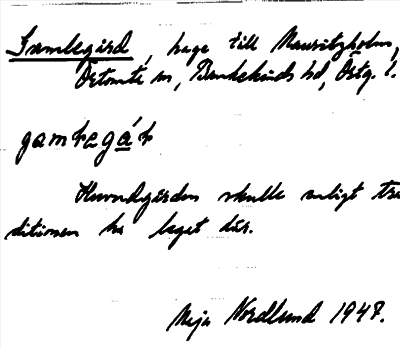 Gamlegård, hage till Mauritzholm,
Örtomta sn, Bankekinds hd, Östg. l.
Huvudgården skulle enligt tra
ditionen ha legat där.
Maja Nordlund 1947.